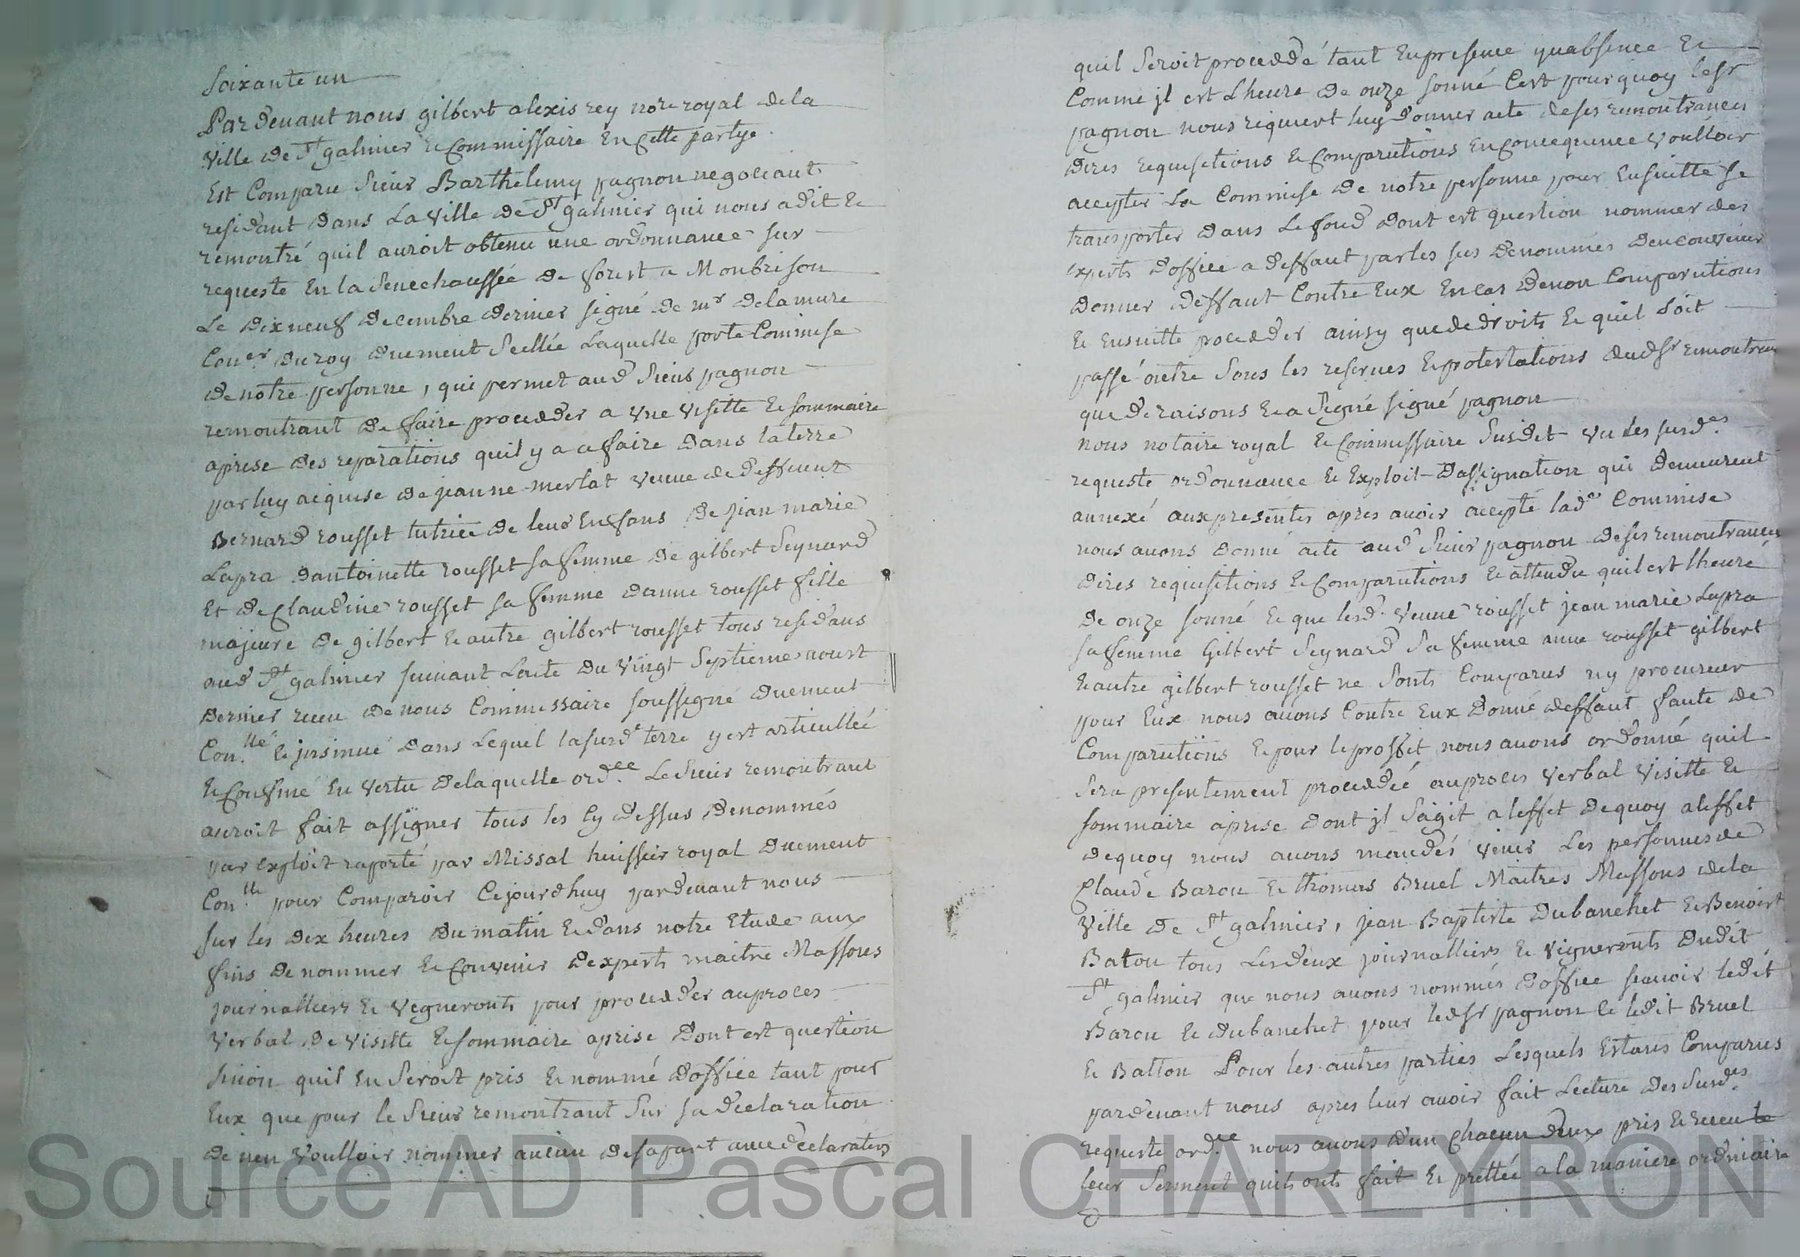 Soixante un
Pardevant nous gilbert alexis rey nore royal de la
ville de St galmier & Commissaire En Cette partye
Est Comparu Sieur Barthelemy pagnon negociant
residant dans La ville de St galmier qui nous a dit &
remontré quil auroit obtenu une ordonnance sur
requeste En la Senechaussée de forest a Monbrison
Le dix neuf decembre dernier signé de mr delamure
Coner du roy duement Scellée Laquelle porte Commise
de notre personne, qui permet aud Sieur pagnon
remontrant de faire proceder a vne visitte & sommaire
aprise des reparations quil y a a faire dans la terre
par luy acquise de jeanne merlat veuve de deffunt
Bernard rousset tutrice de leurs Enfans de jean marie
Lapra dantoinette rousset sa femme de gilbert Seynard
Et de Claudine rousset sa femme danne rousset fille
majeure de gilbert & autre gilbert rousset tous residans
aud St galmier suivant Lacte du vingt Septieme aoust
dernier receu de nous Commissaire soussigné duement
Conllé & jnsinué dans Lequel lasusde terre y est articullée
& Confiné En vertu de laquelle ordcc Le Sieur remontrant
auroit fait assigner tous les Cy dessus denommés
par exploit raporté par Missal huissier royal duement
Conllé pour Comparoir Cejourdhuy pardevant nous
sur les dix heures du matin & dans notre Etude aux
fins de nommer & Convenir dexperts maitre Massons
journalliers & vegneronts pour proceder au proces
verbal de visitte & sommaire aprise dont est question
sinon quil En Seroit pris & nommé doffice tant pour
Eux que pour le Sieur remontrant Sur sa declaration
de nen voulloir nommer aucun de sa part avec declaration
quil Seroit procedé tant En presence quabsence &
Comme jl est Lheure de onze sonné Cest pourquoy ledsr
pagnon nous requiert luy donner acte de ses remontrances
dires requisitions & Comparutions En Consequence voulloir
accepter La Commise de notre personne pour Ensuitte se
transporter dans Le fond dont est question nommer des
experts doffice a deffaut par les sus denommés den convenir
donner deffaut Contre Eux En cas de non Comparutions
& Ensuitte proceder ainsy que de droits & quil soit
passé outre Sous les reserves & protestations dudsr remontrant
que de raisons & a Signé signé pagnon
nous notaire royal & Commissaire Susdit vu les susdes
requeste ordonnance & Exploit dassignation qui demeurent
annexé aux presentes apres avoir accepté lade Commise
nous avons donné acte aud Sieur pagnon de ses remontrances
dires requisitions & Comparutions & attendu quil est lheure
de onze sonné & que lesd veuve rousset jean marie Lapra
sa femme Gilbert Seynard Sa femme anne rousset gilbert
& autre gilbert rousset ne Sonts Comparus ny procureur
pour Eux nous avons Contre Eux donné deffaut faute de
Comparutions & pour le proffit nous avons ordonné quil
Sera presentement procedée au proces verbal visitte &
sommaire aprise dont jl Sagit a leffet de quoy a leffet
de quoy nous avons mandés venir Les personnes de
Claude Barou & thomas Bruel Maitres Massons de la
ville de St galmier, jean Baptiste dubanchet & Benoist
Batou tous Les deux journalliers & vigneronts dudit
St galmier que nous avons nommés doffice scavoir ledit
Barou & dubanchet pour ledsr pagnon & ledit Bruel
& Batton Pour les autres parties Lesquels Estans Comparus
pardevant nous apres leur avoir fait Lecture des Susdes
requeste ordce nous avons dun Chacun deux pris & receu
leur Serment quils onts fait & prettée a la maniere ordinaire
Source AD Pascal CHAREYRON